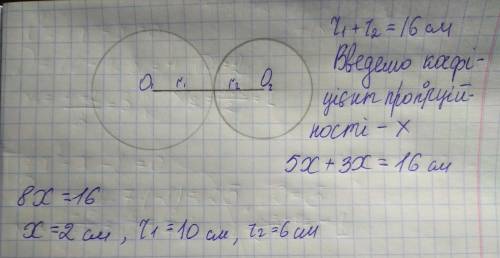 O₁ r₁ r₂ O₂
r₁ + r₂ = 16 см
Введемо коефі-
цієнт пропрцій-
ності - x
5x + 3x = 16 см
8x = 16
x = 2 см, r₁ = 10 см, r₂ = 6 см